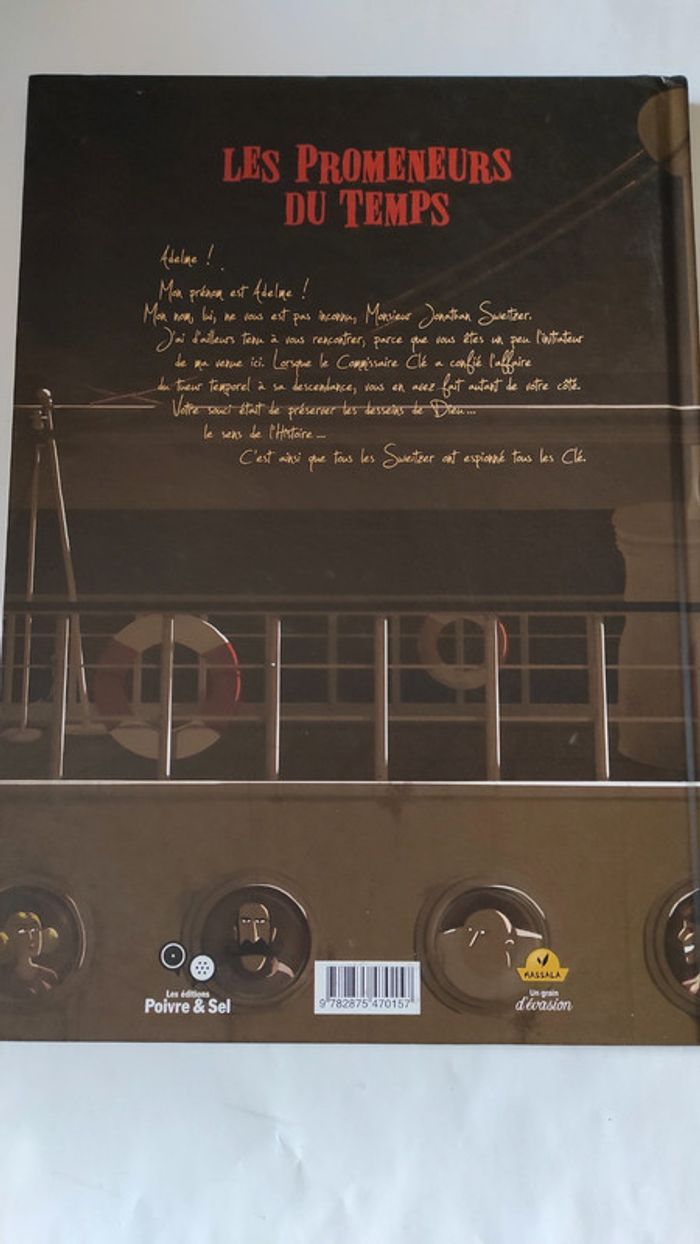 LES PROMENEURS
DU TEMPS
Adelme !
Mon prénom est Adelme !
Mon nom, lui, ne vous est pas inconnu, Monsieur Jonathan Sweitzer.
J'ai d'ailleurs tenu à vous rencontrer, parce que vous êtes un peu l'initiateur
de ma venue ici. Lorsque le Commissaire Clé a confié l'affaire
du tueur temporel à sa descendance, vous en avez fait autant de votre côté.
Votre souci était de préserver les desseins de Dieu...
le sens de l'Histoire...
C'est ainsi que tous les Sweitzer ont espionné tous les Clé.
Les éditions
Poivre & Sel
9 782875 470157
MASSALA
Un grain
d'évasion